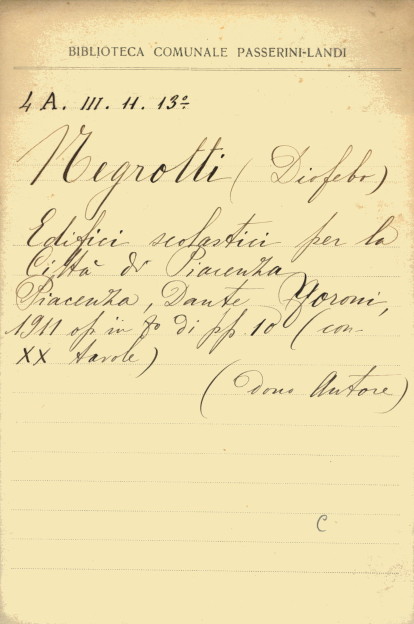 BIBLIOTECA COMUNALE PASSERINI-LANDI
4 A. III. H. 13º
Negrotti (Diofebo)
Edifici scolastici per la
Città di Piacenza
Piacenza, Dante Foroni,
1911 op in 8º di pp 10 (con
XX tavole)
(dono Autore)
C